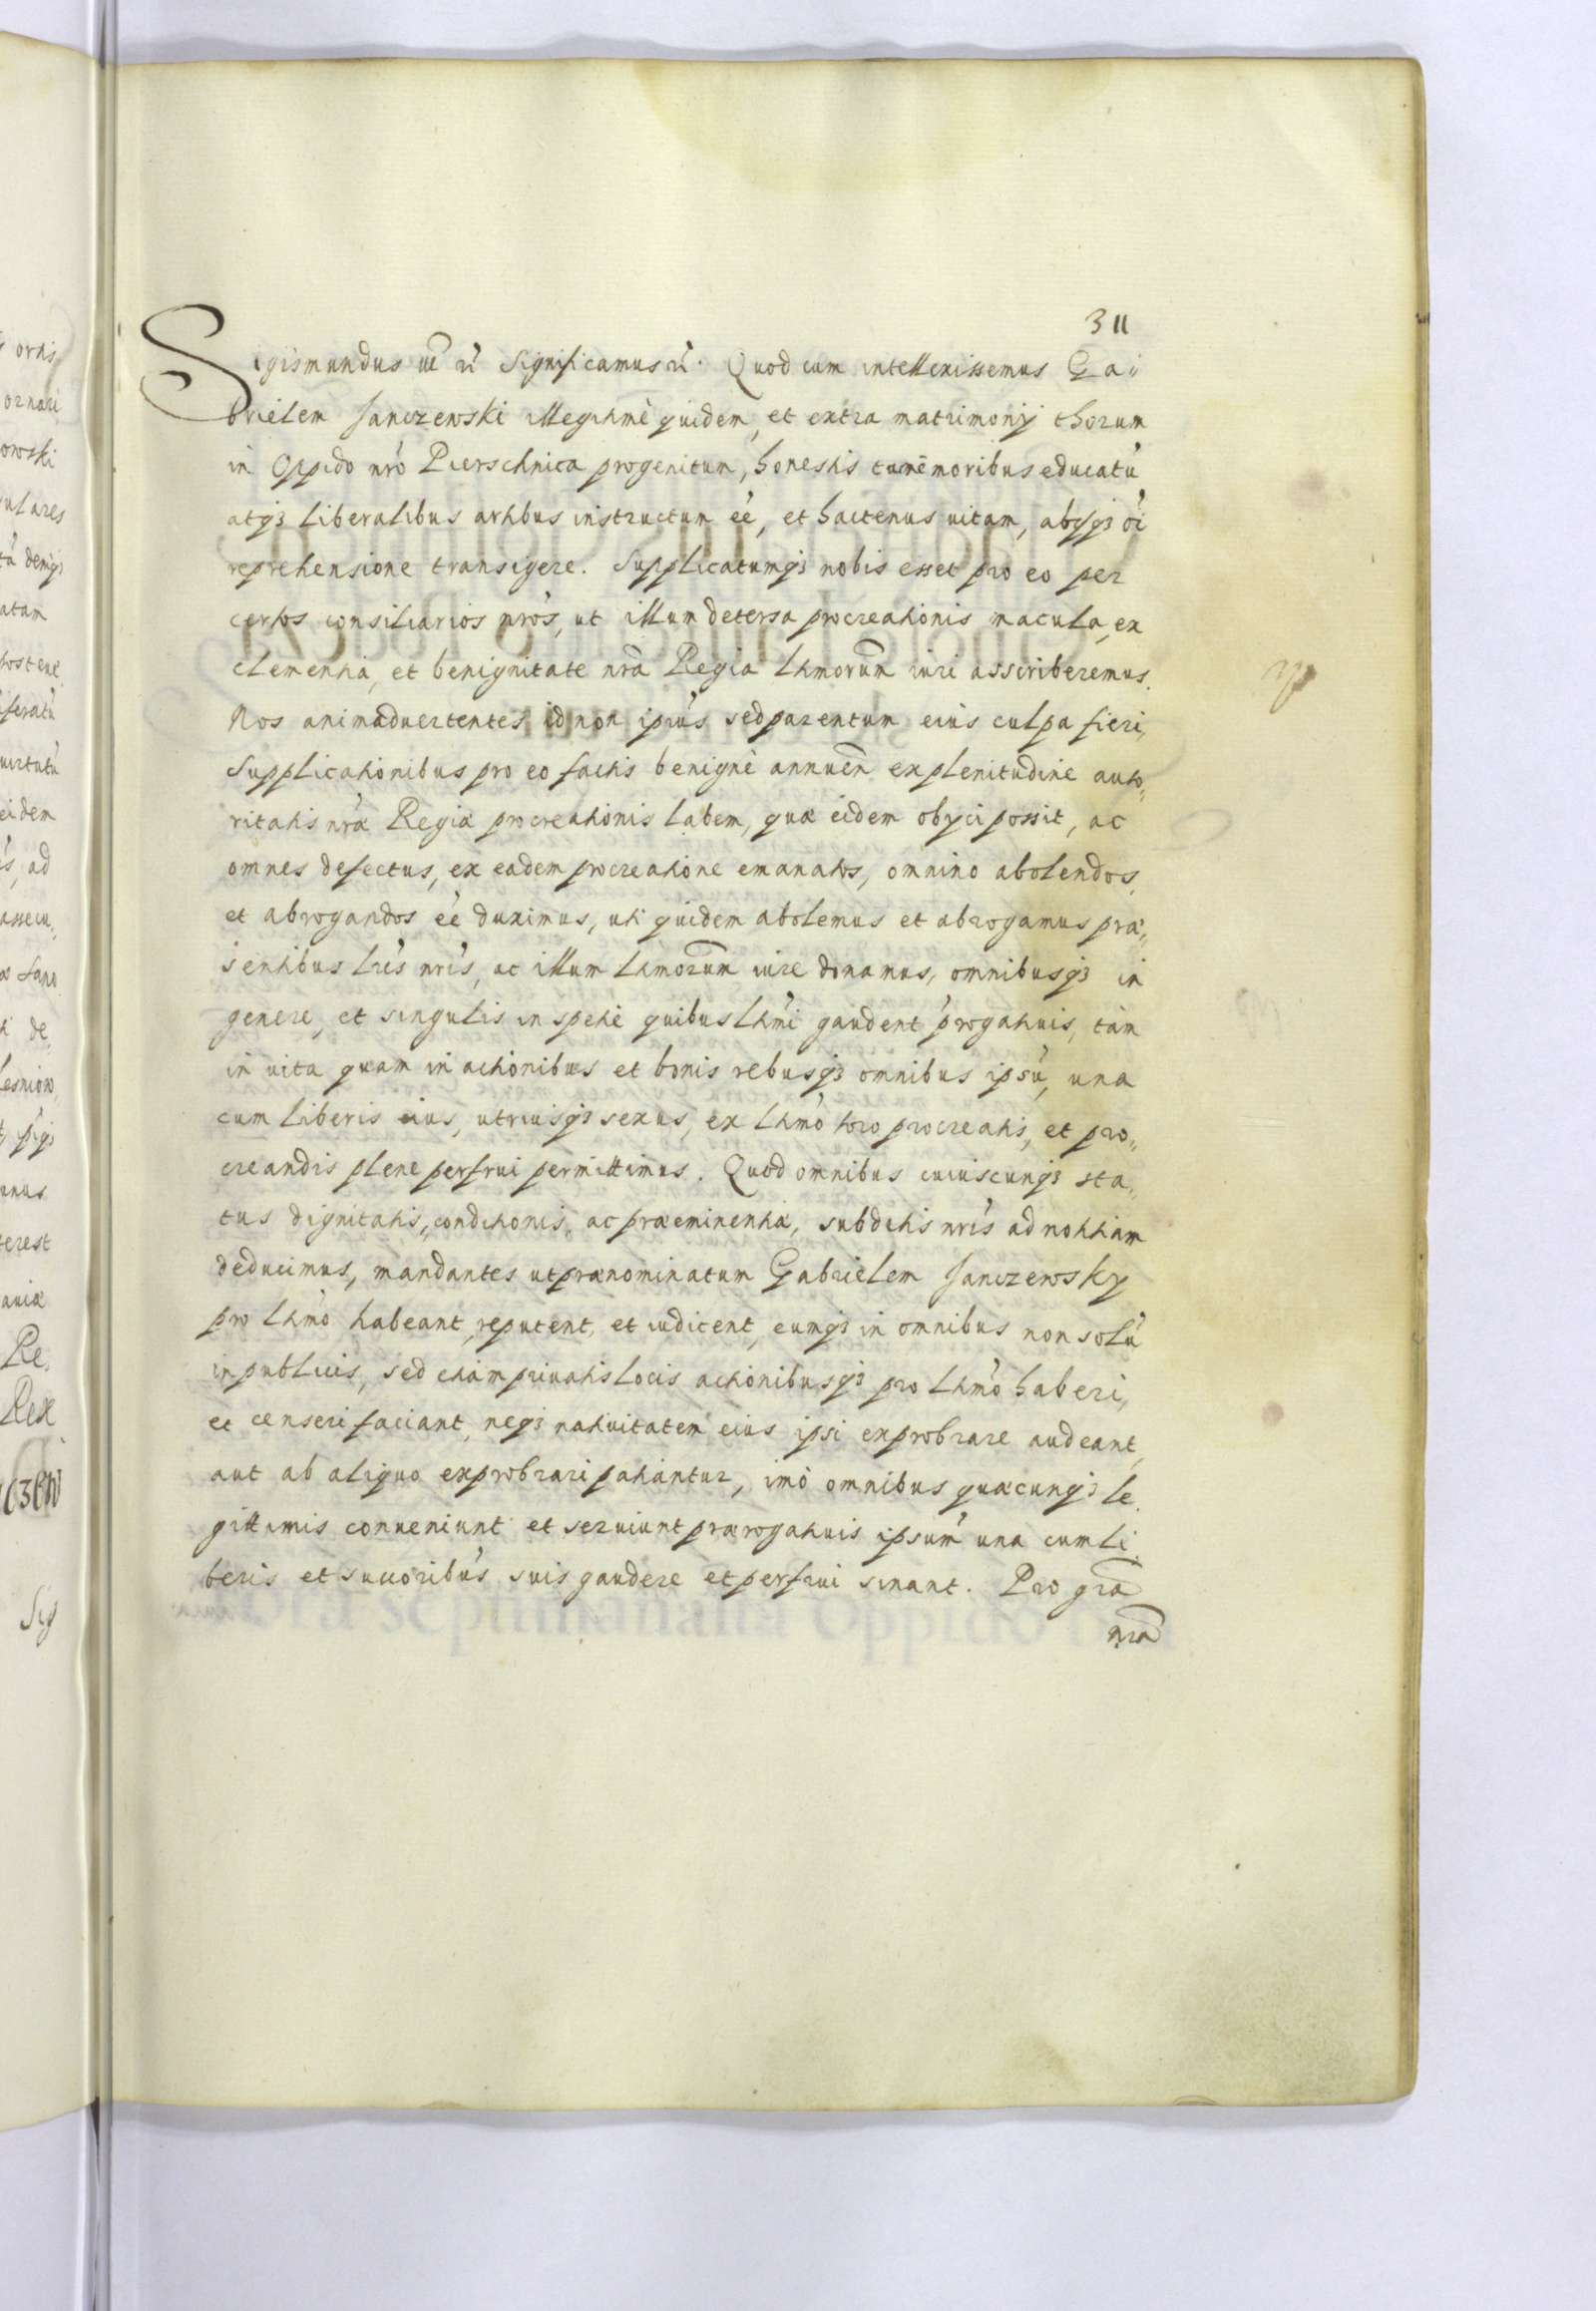 311
Sigismundus iīī r̃ Significamus r̃. Quod cum intellexissemus Ga„
brielem Janczewski illegitimè quidem, et extra matrimonij thorum
in Oppido nrõ Pierschnica progenitum, honestis tamẽ moribus educatũ
atq3 liberalibus artibus instructum eẽ, et hactenus uitam, absq3 oĩ
reprehensione transigere. Supplicatumq3 nobis esset pro eo per
certos consiliarios nrõs, ut illum detersa procreationis macula, ex
clementia, et benignitate nrã Regia ltmorum iuri asscriberemus.
Nos animaduertentes id non ipiũs sed parentum eius culpa fieri,
Supplicationibus pro eo factis benignè annueñ ex plenitudine auto„
ritatis nræ̃ Regiæ procreationis labem, quæ eidem obijci possit, ac
omnes defectus, ex eadem procreatione emanatos, omnino abolendos,
et abrogandos eẽ duximus, uti quidem abolemus et abrogamus præ„
sentibus lrĩs nrĩs, ac illum ltmorum iure donamus, omnibusq3 in
genere, et singulis in spetie quibus ltmĩ gaudent p̃rogatiuis, tàm
in uita quam in actionibus et bonis rebusq3 omnibus ipsũ, una
cum liberis eius, utriusq3 sexus, ex ltmõ toro procreatis, et pro„
creandis plene perfrui permittimus. Quod omnibus cuiuscunq3 sta„
tus dignitatis, conditionis, ac præeminentiæ, subditis nrĩs ad notitiam
deducimus, mandantes ut prænominatum Gabrielem Janczewsky
pro ltmõ habeant, reputent, et iudicent, eumq3 in omnibus non solũ
in publicis, sed etiàm priuatis locis actionibusq3 pro ltmõ haberi,
et censeri faciant, neq3 natiuitatem eius ipsi exprobrare audeant,
aut ab aliquo exprobrari patiantur, imò omnibus quæcunq3 le„
gittimis conueniunt et seruiunt prærogatiuis ipsum una cum li„
beris et succoribũs suis gaudere et perfrui sinant. Pro grã
nrã